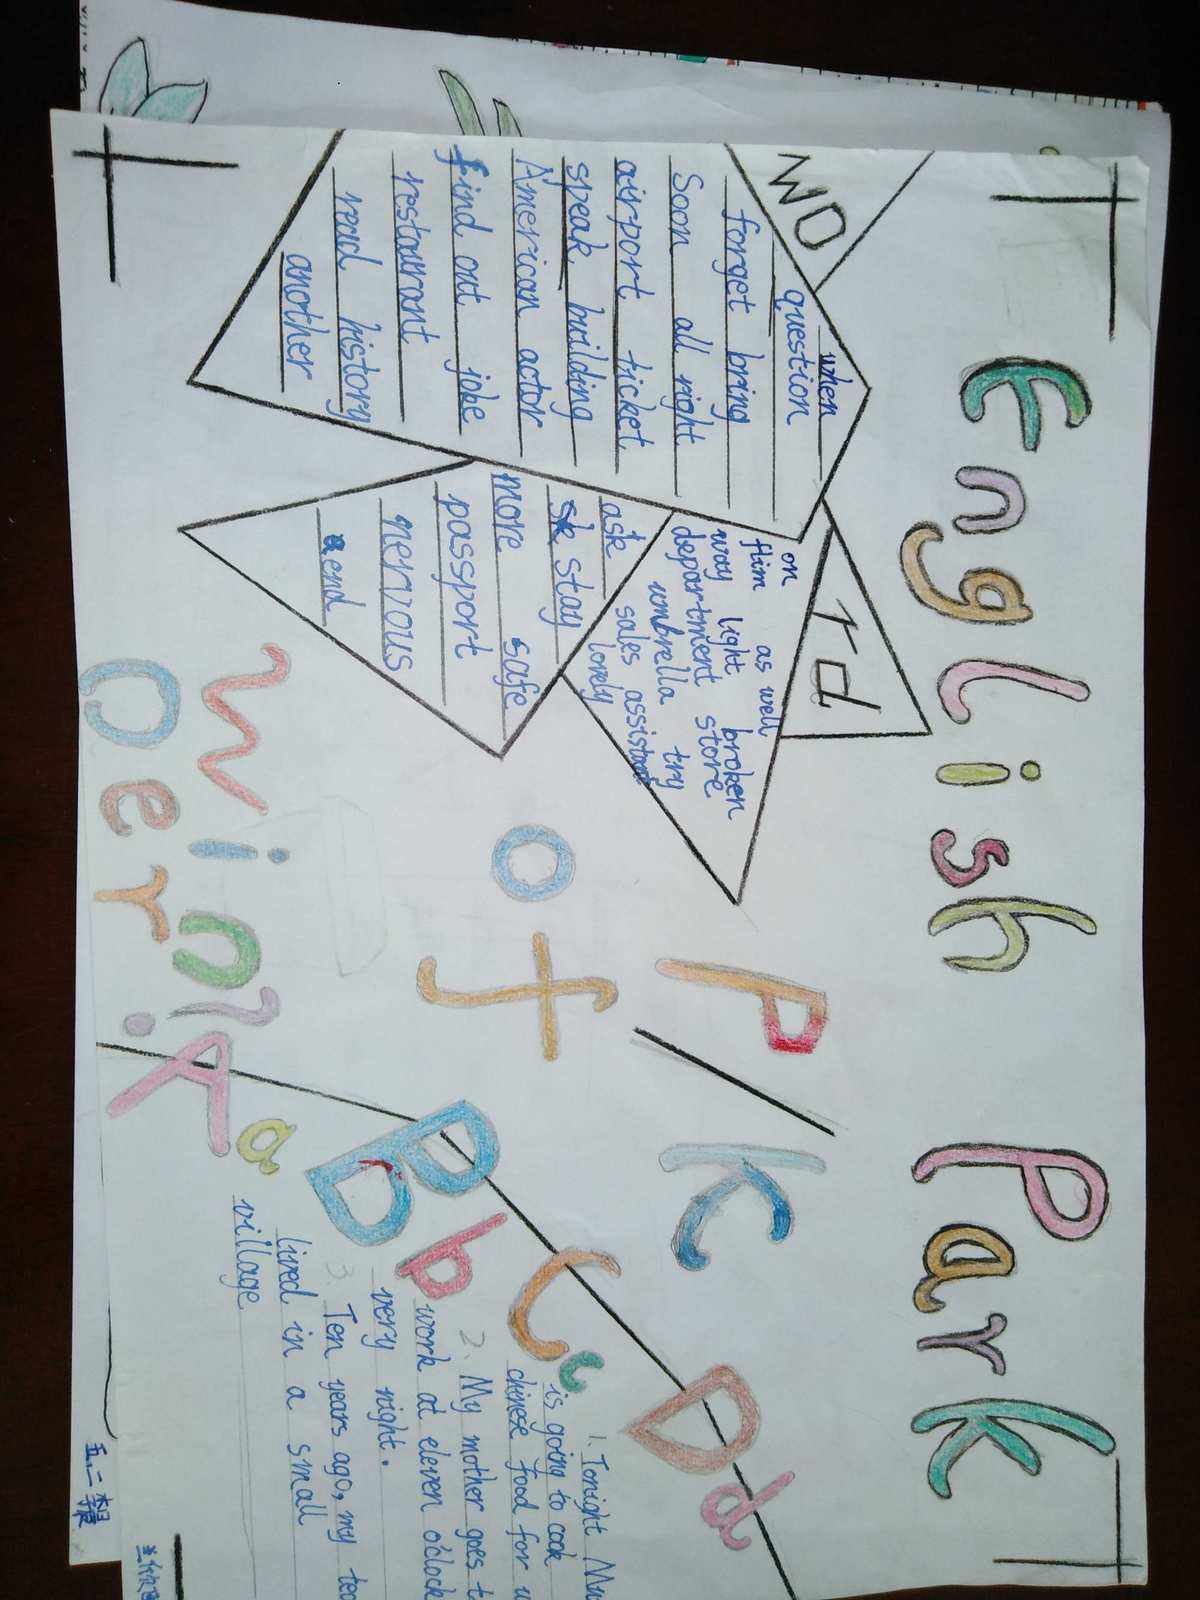 English Park
WO
when
question
forget bring
Soon all right
airport ticket
speak building
American actor
find out joke
restaurant
read history
another
rd
on as well
flim light broken
way department store
umbrella try
sales assistant
lovely
ask
stay
more safe
passport
nervous
end
P/K
of
win?
Oer
A a
B b
C c
D d
1. Tonight
is going to cook
chinese food for
2. My mother goes t
work at eleven o'clock
very night.
3. Ten years ago, my
lived in a small
village
五.二